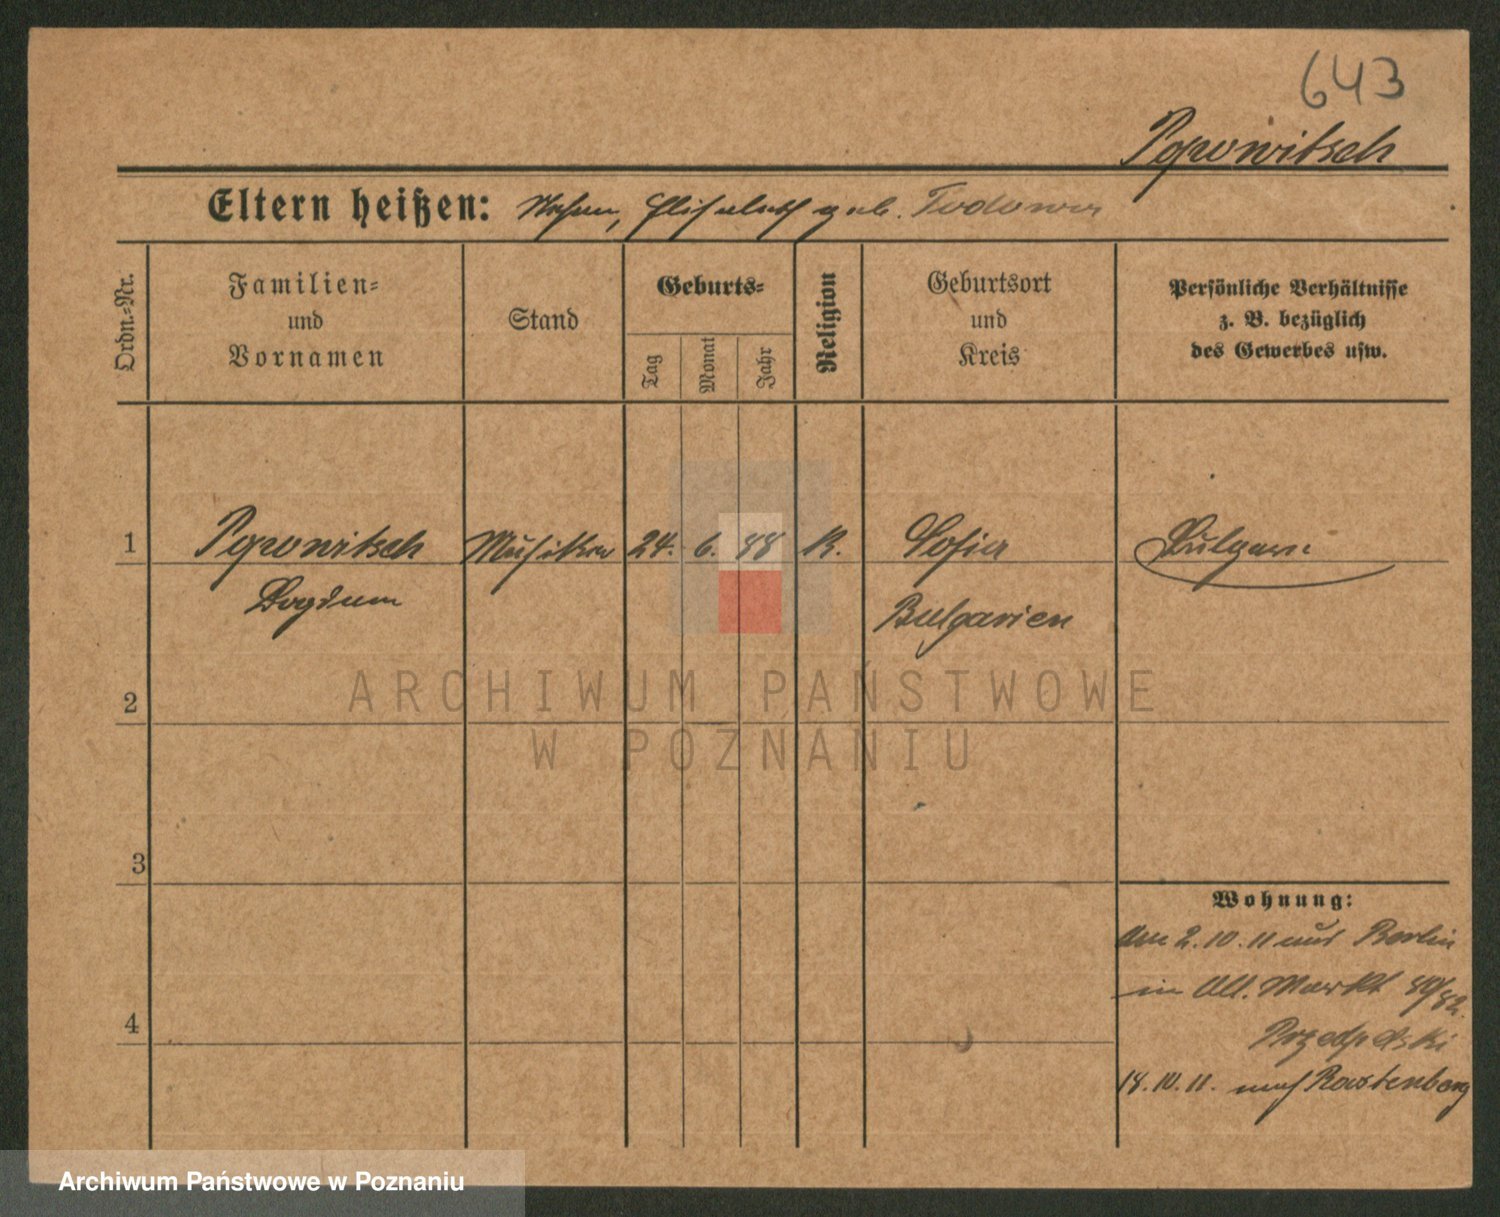 643
Popowitsch
Eltern heißen: Elisabeth geb. Todorow
Ordn.-Nr.
Familien-
und
Vornamen
Stand
Geburts-
Tag
Monat
Jahr
Religion
Geburtsort
und
Kreis
Persönliche Verhältnisse
z. B. bezüglich
des Gewerbes usw.
1 Popowitsch Musiker 24. 6. 88 K. Sofia Bulgare
Bogdan Bulgarien
2
ARCHIWUM PAŃSTWOWE
W POZNANIU
3
Wohnung:
Am 2.10.11 aus Berlin
in Alt. Markt 80/82.
4
18.10.11. nach Rastenburg
Archiwum Państwowe w Poznaniu